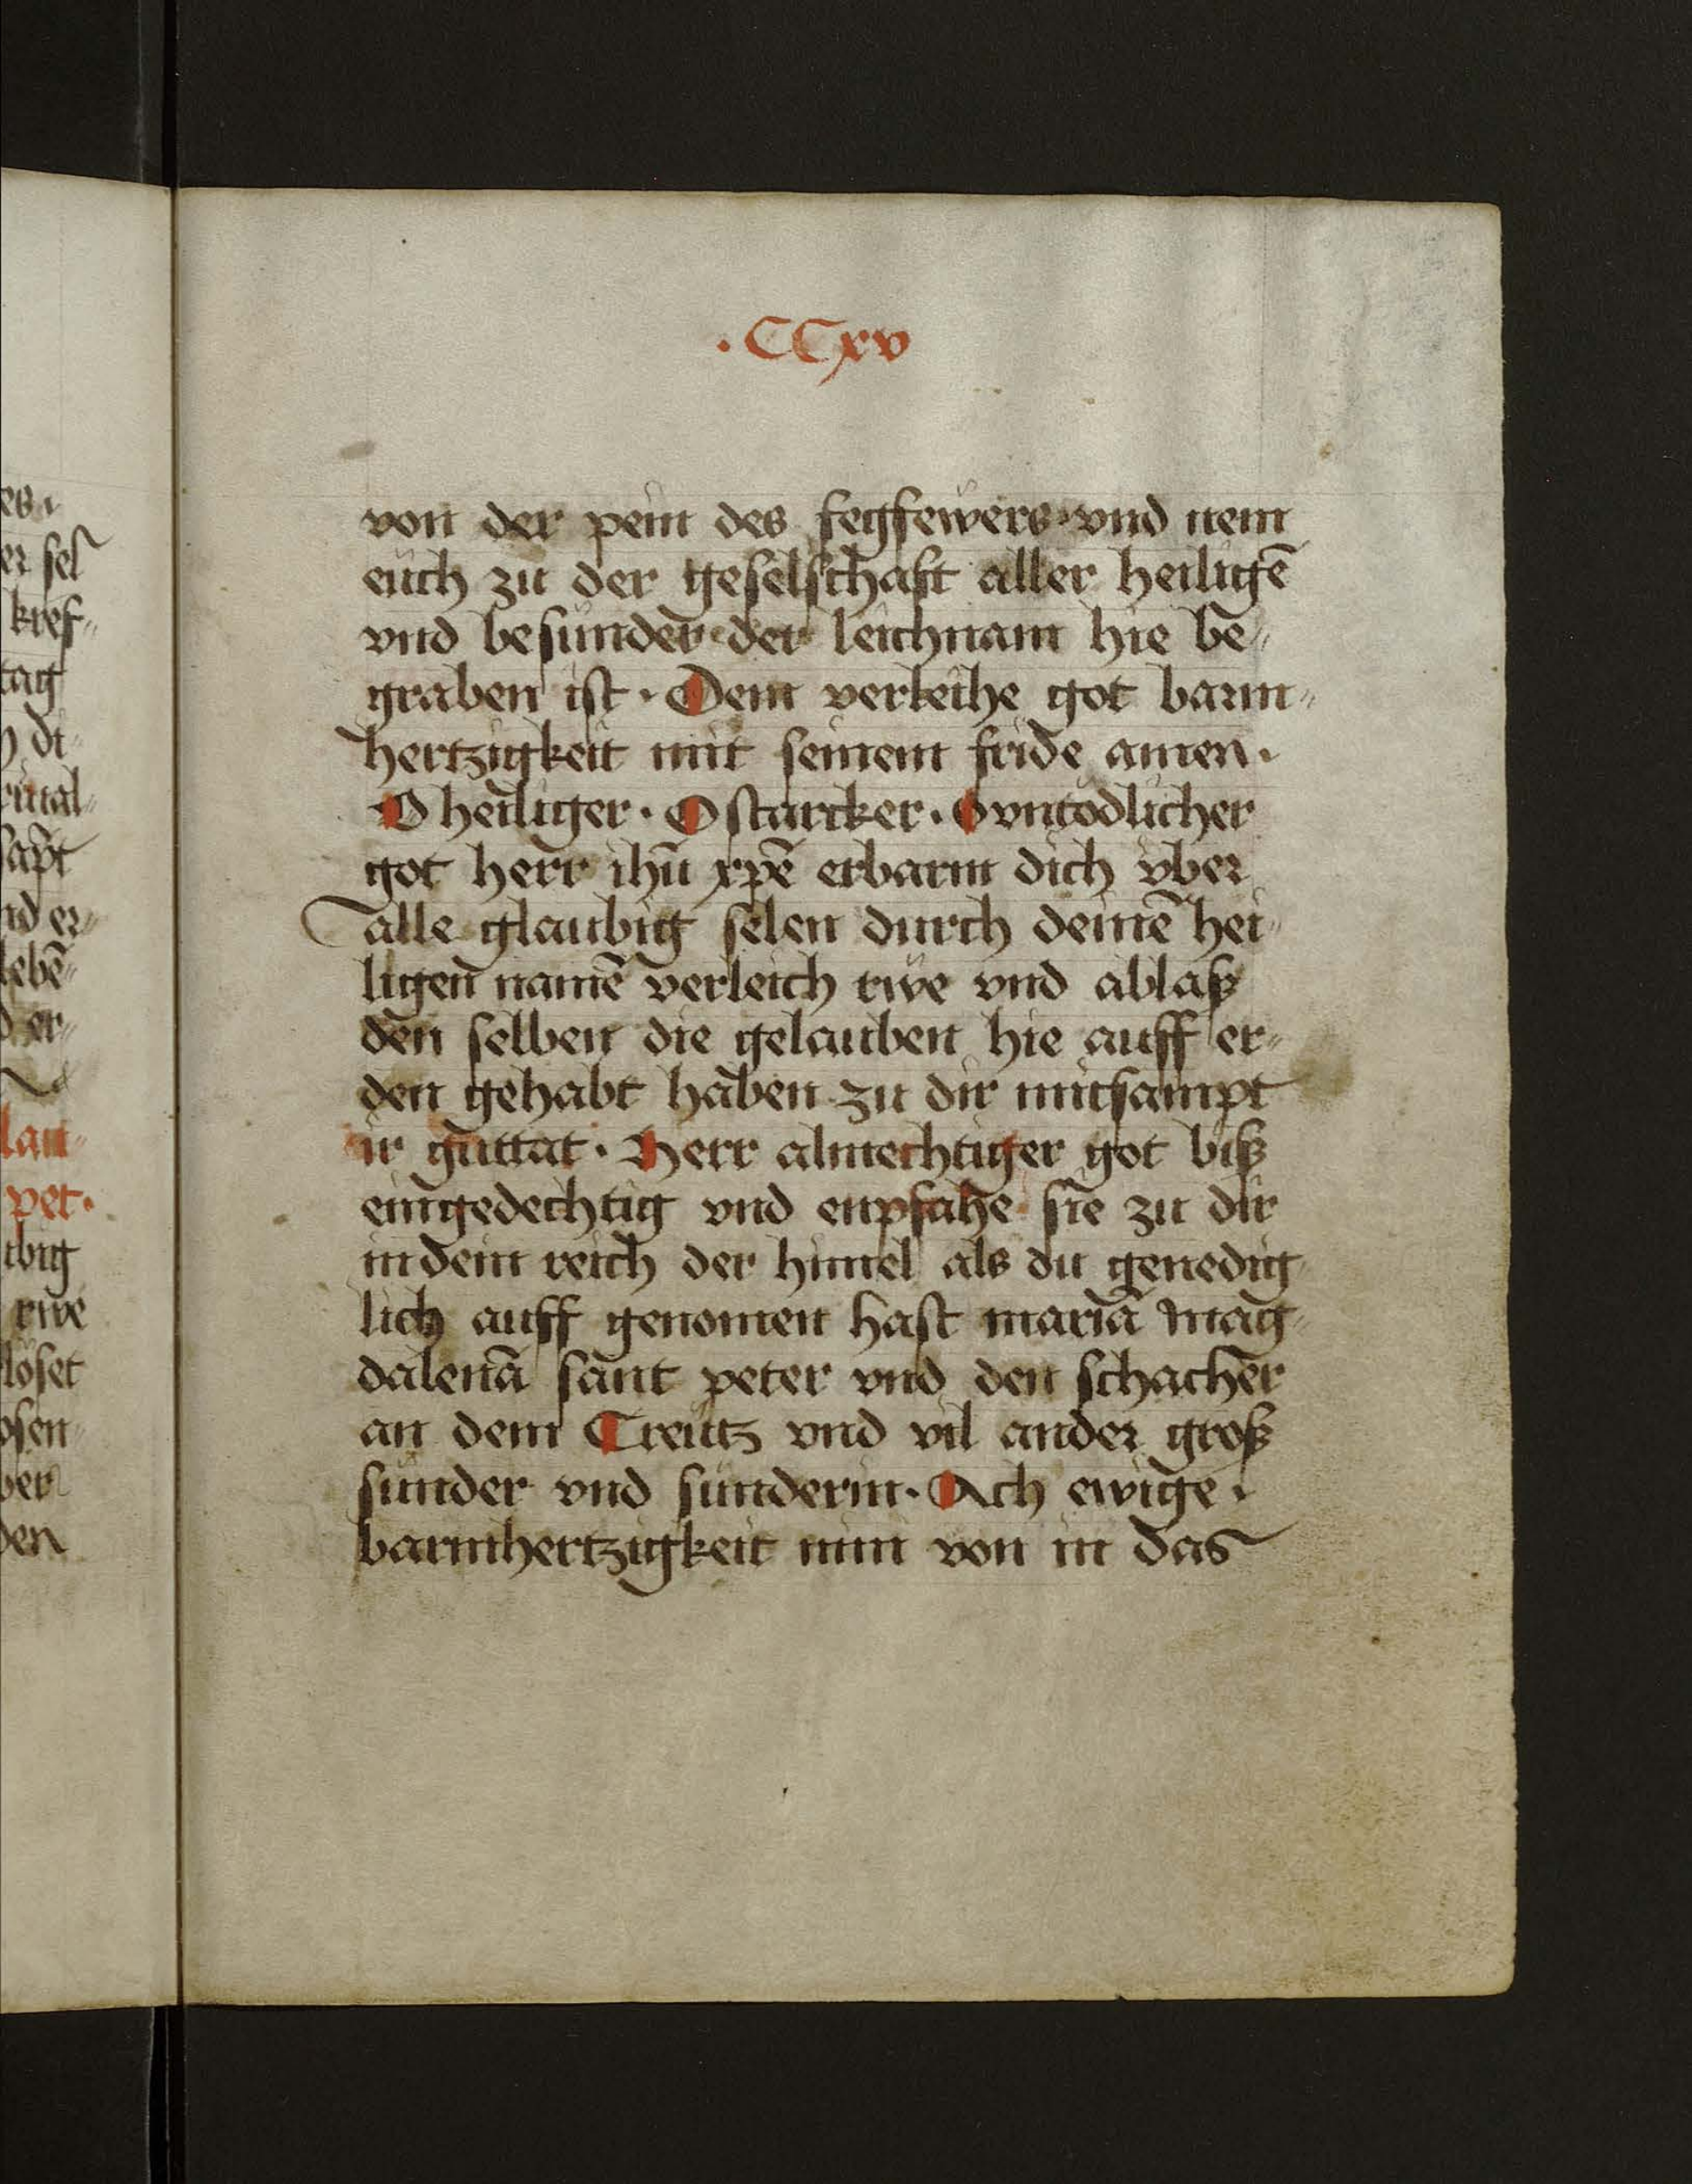 es.
er sel
kref„
tag
di„
sapt
nd er„
lebē„
er„
lau„
pet.
ubig
rwe
löset
osen
ber
den
.CCxv
von der pein des fegfewers vnd nem
euch zu der geselschaft aller heiligē
vnd besunder der leichnam hie be„
graben ist. Dem verleihe got barm„
hertzigkeit mit seinem fride amen.
O heiliger. O starcker. O vntödlicher
got herr ihū xpē erbarm dich vber
alle glaubig selen durch deinē hei„
ligen namē verleich rwe vnd ablaß
den selben die gelauben hie auff er„
den gehabt haben zu dir mitsampt
ir guttat. Herr almechtiger got biß
eingedechtig vnd enpfahe sie zu dir
in dein reich der himel als du genedig„
lich auff genomen hast mariā mag„
dalenā sant peter vnd den schacher
an dem Creutz vnd vil ander groß
sunder vnd sunderin. Ach ewige.
barmhertzigkeit nim von in das